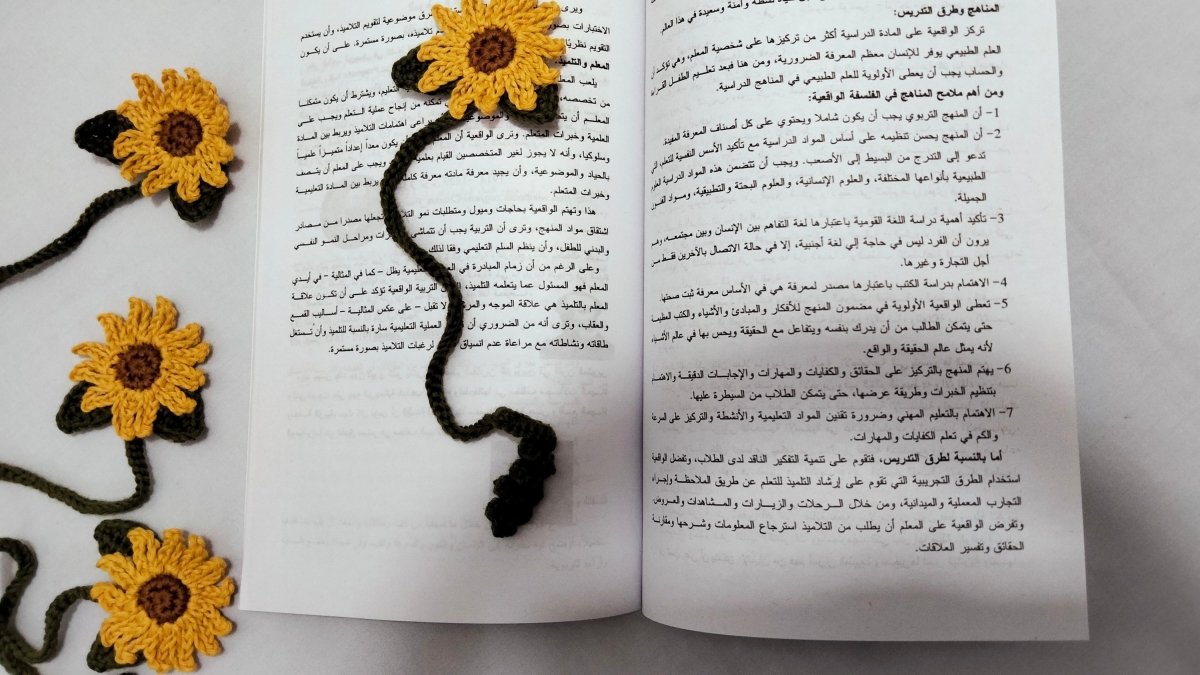 المناهج وطرق التدريس:
تركز الواقعية على المادة الدراسية أكثر من تركيزها على شخصية المعلم، وهي تؤكد أن
العلم الطبيعي يوفر للإنسان معظم المعرفة الضرورية، ومن هنا فبعد تعليم الطفل القراءة
والحساب يجب أن يعطى الأولوية للعلم الطبيعي في المناهج الدراسية.
ومن أهم ملامح المناهج في الفلسفة الواقعية:
1- أن المنهج التربوي يجب أن يكون شاملا ويحتوي على كل أصناف المعرفة المفيدة
2- أن المنهج يحسن تنظيمه على أساس المواد الدراسية مع تأكيد الأسس النفسية للتعلم، التي
تدعو إلى التدرج من البسيط إلى الأصعب. ويجب أن تتضمن هذه المواد الدراسية العلوم
الطبيعية بأنواعها المختلفة، والعلوم الإنسانية، والعلوم البحتة والتطبيقية، ومواد الفنون
الجميلة.
3- تأكيد أهمية دراسة اللغة القومية باعتبارها لغة التفاهم بين الإنسان وبين مجتمعه، وهم
يرون أن الفرد ليس في حاجة إلي لغة أجنبية، إلا في حالة الاتصال بالآخرين فقط من
أجل التجارة وغيرها.
4- الاهتمام بدراسة الكتب باعتبارها مصدر لمعرفة هي في الأساس معرفة ثبت صحتها.
5- تعطى الواقعية الأولوية في مضمون المنهج للأفكار والمبادئ والأشياء والكتب العظيمة
حتى يتمكن الطالب من أن يدرك بنفسه ويتفاعل مع الحقيقة ويحس بها في عالم الأشياء
لأنه يمثل عالم الحقيقة والواقع.
6- يهتم المنهج بالتركيز على الحقائق والكفايات والمهارات والإجابات الدقيقة والاهتمام
بتنظيم الخبرات وطريقة عرضها، حتى يتمكن الطلاب من السيطرة عليها.
7- الاهتمام بالتعليم المهني وضرورة تقنين المواد التعليمية والأنشطة والتركيز على السرعة
والكم في تعلم الكفايات والمهارات.
أما بالنسبة لطرق التدريس، فتقوم على تنمية التفكير الناقد لدى الطلاب، وتفضل الواقعية
استخدام الطرق التجريبية التي تقوم على إرشاد التلميذ للتعلم عن طريق الملاحظة وإجراء
التجارب المعملية والميدانية، ومن خلال الرحلات والزيارات والمشاهدات والعروض.
وتفرض الواقعية على المعلم أن يطلب من التلاميذ استرجاع المعلومات وشرحها ومقارنة
الحقائق وتفسير العلاقات.
ويرى
الاختبارات بصور طرق موضوعية لتقويم التلاميذ، وأن يستخدم
التقويم نظريًا تلاميذه، بصورة مستمرة. على أن يكون
المعلم والتلميذ.
يلعب المعلم التعليم، ويشترط أن يكون متمكنا
من تخصصه، تمكنه من إنجاح عملية التعلم ويجب على
المعلم أن والموضوعية يراعي اهتمامات التلاميذ ويربط بين المادة
العلمية وخبرات المتعلم. وترى الواقعية أن المعلم يكون معداً إعداداً متميزاً علمياً
وسلوكيا، وأنه لا يجوز لغير المتخصصين القيام ويجب على المعلم أن يتصف
بالحياد والموضوعية، وأن يجيد معرفة مادته معرفة يربط بين المادة التعليمية
وخبرات المتعلم.
هذا وتهتم الواقعية بحاجات وميول ومتطلبات نمو التلاميذ تجعلها مصدرا من مصادر
اشتقاق مواد المنهج، وترى أن التربية يجب أن تتماشى ومراحل النمو النفسي
والبدني للطفل، وأن ينظم السلم التعليمي وفقا لذلك
وعلى الرغم من أن زمام المبادرة في التعليمية يظل – كما في المثالية – في أيدي
المعلم فهو المسئول عما يتعلمه التلميذ، التربية الواقعية تؤكد على أن تكون علاقة
المعلم بالتلميذ هي علاقة الموجه لا تقبل – على عكس المثالية – أساليب القمع
والعقاب، وترى أنه من الضروري أن العملية التعليمية سارة بالنسبة للتلميذ وأن تستغل
طاقاته ونشاطاته مع مراعاة عدم انسياق لرغبات التلاميذ بصورة مستمرة.